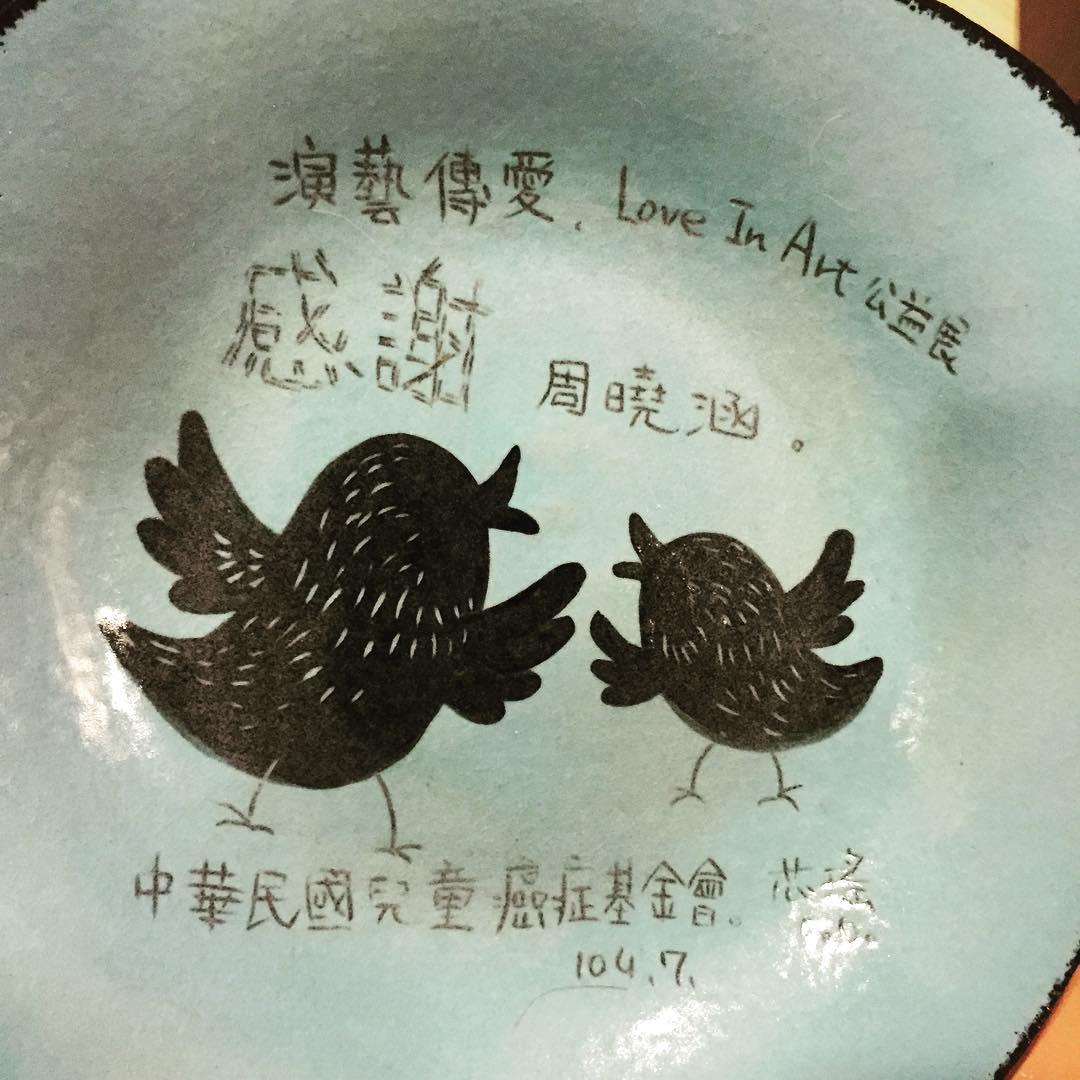 演藝傳愛．Love In Art 公益展
感謝 周曉涵。
中華民國兒童癌症基金會。芯瑤
104.7.